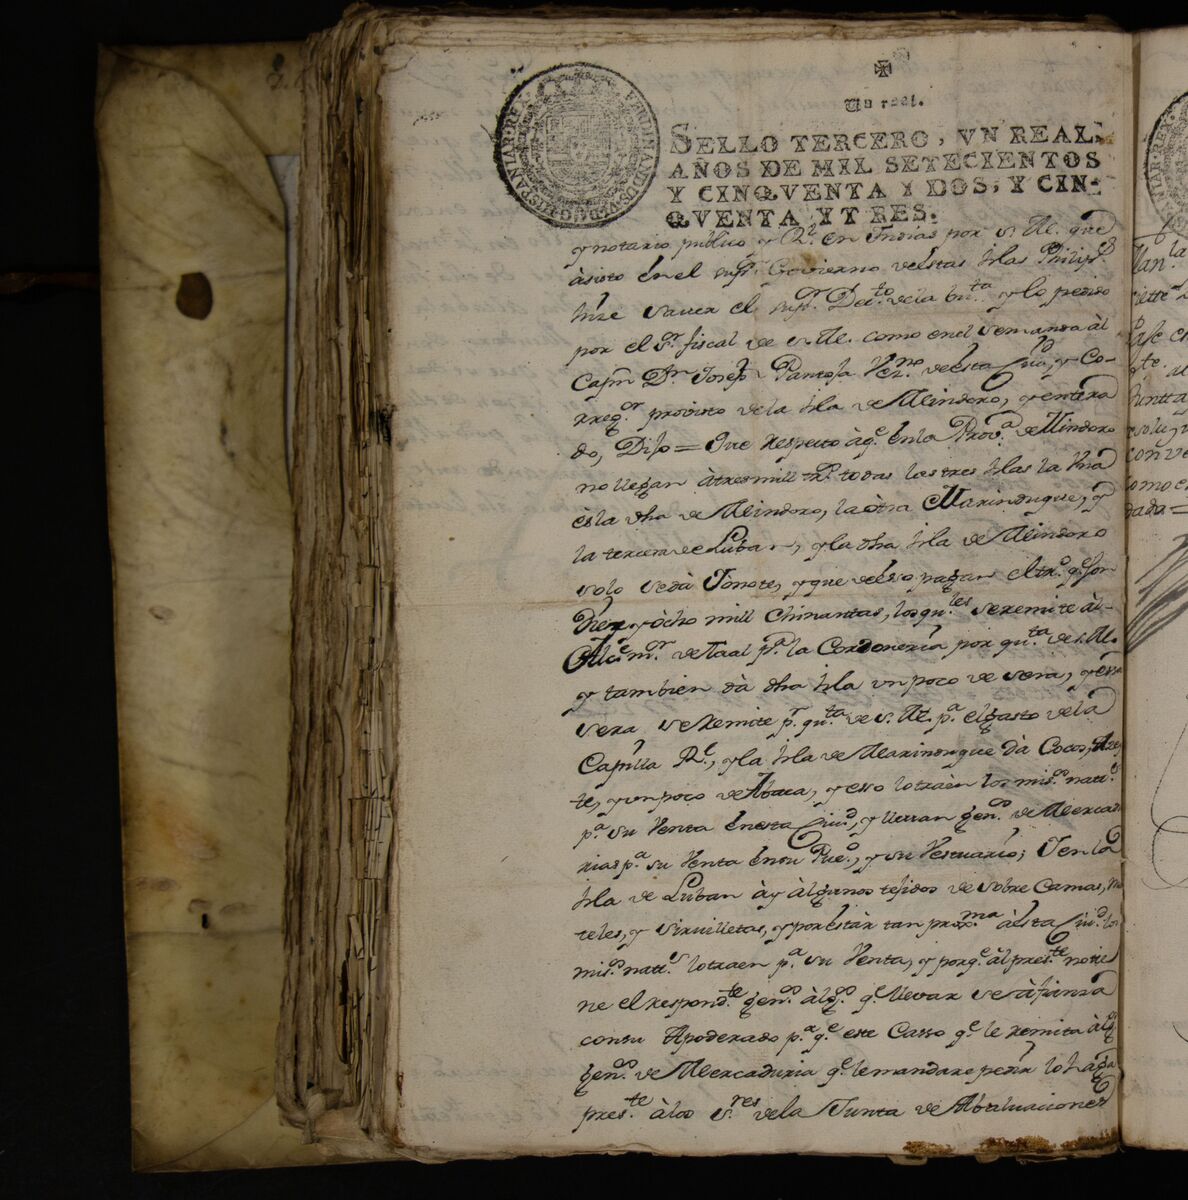 Un real.
SELLO TERCERO, VN REAL
AÑOS DE MIL SETECIENTOS
Y CINQVENTA Y DOS, Y CIN-
QVENTA, Y TRES.
FERDINANDUS·VI·D·G· HISPANIAR·REX·
y notario publico y Rl. en Indias por S. M. que
àsisto en el supr. Govierno de estas Islas Philips.
hize saver el supr. Decto. de la bta. y lo pedido
por el Sr. fiscal de S. M. como en el se manda àl
Capn. Dn. Joseph Pantoja Vezno. de esta Ciud, y Co-
rregor provisto de la Isla de Mindoro, y entera
do, Dijo = Que respecto àqe. en la Prova. de Mindoro
no llegan àtres mill tros. todas las tres Islas la Una
es la dha de Mindoro, la òtra Marinduque, y
la tercera de Luban, y la dha Isla de Mindoro
solo se dà Jonote, y que de esso pagan el tro. qe. son
Diez y òcho mill Chinantas, los qules se remite àl-
Alce. mor. de Taal pa. la Cordoneria por quta. de S. M.
y tambien dà dha Isla un poco de sera, y essa
sera se Remite pr. quta. de S. M. pa. el gasto de la
Capilla Rl., y la Isla de Marinduque dà Cocos, Azey
te, y un poco de Abaca, y esso lo traèn los mismos. natts.
pa. su Venta en esta Ciud, y llevan genos. de Mercadu
rias pa. su Venta en su Pueo., y su Vestuario; Y en la
Isla de Luban ày àlgunos tejidos de sobre Camas, Ma
teles, y Servilletas, y por estàr tan proxma. àesta Ciud. los
misos. natts. lo traen pa. su Venta, y porqe. àl preste. no tie
ne el respondte. genos. àlgos. qe. llevar se àfianza
con su Apoderado pa. qe. este Casso qe. le remita àlgs
genos. de Mercaduria qe. le mandare pedir lo haga
preste. à los Sres. de la Junta de Abaluaciones